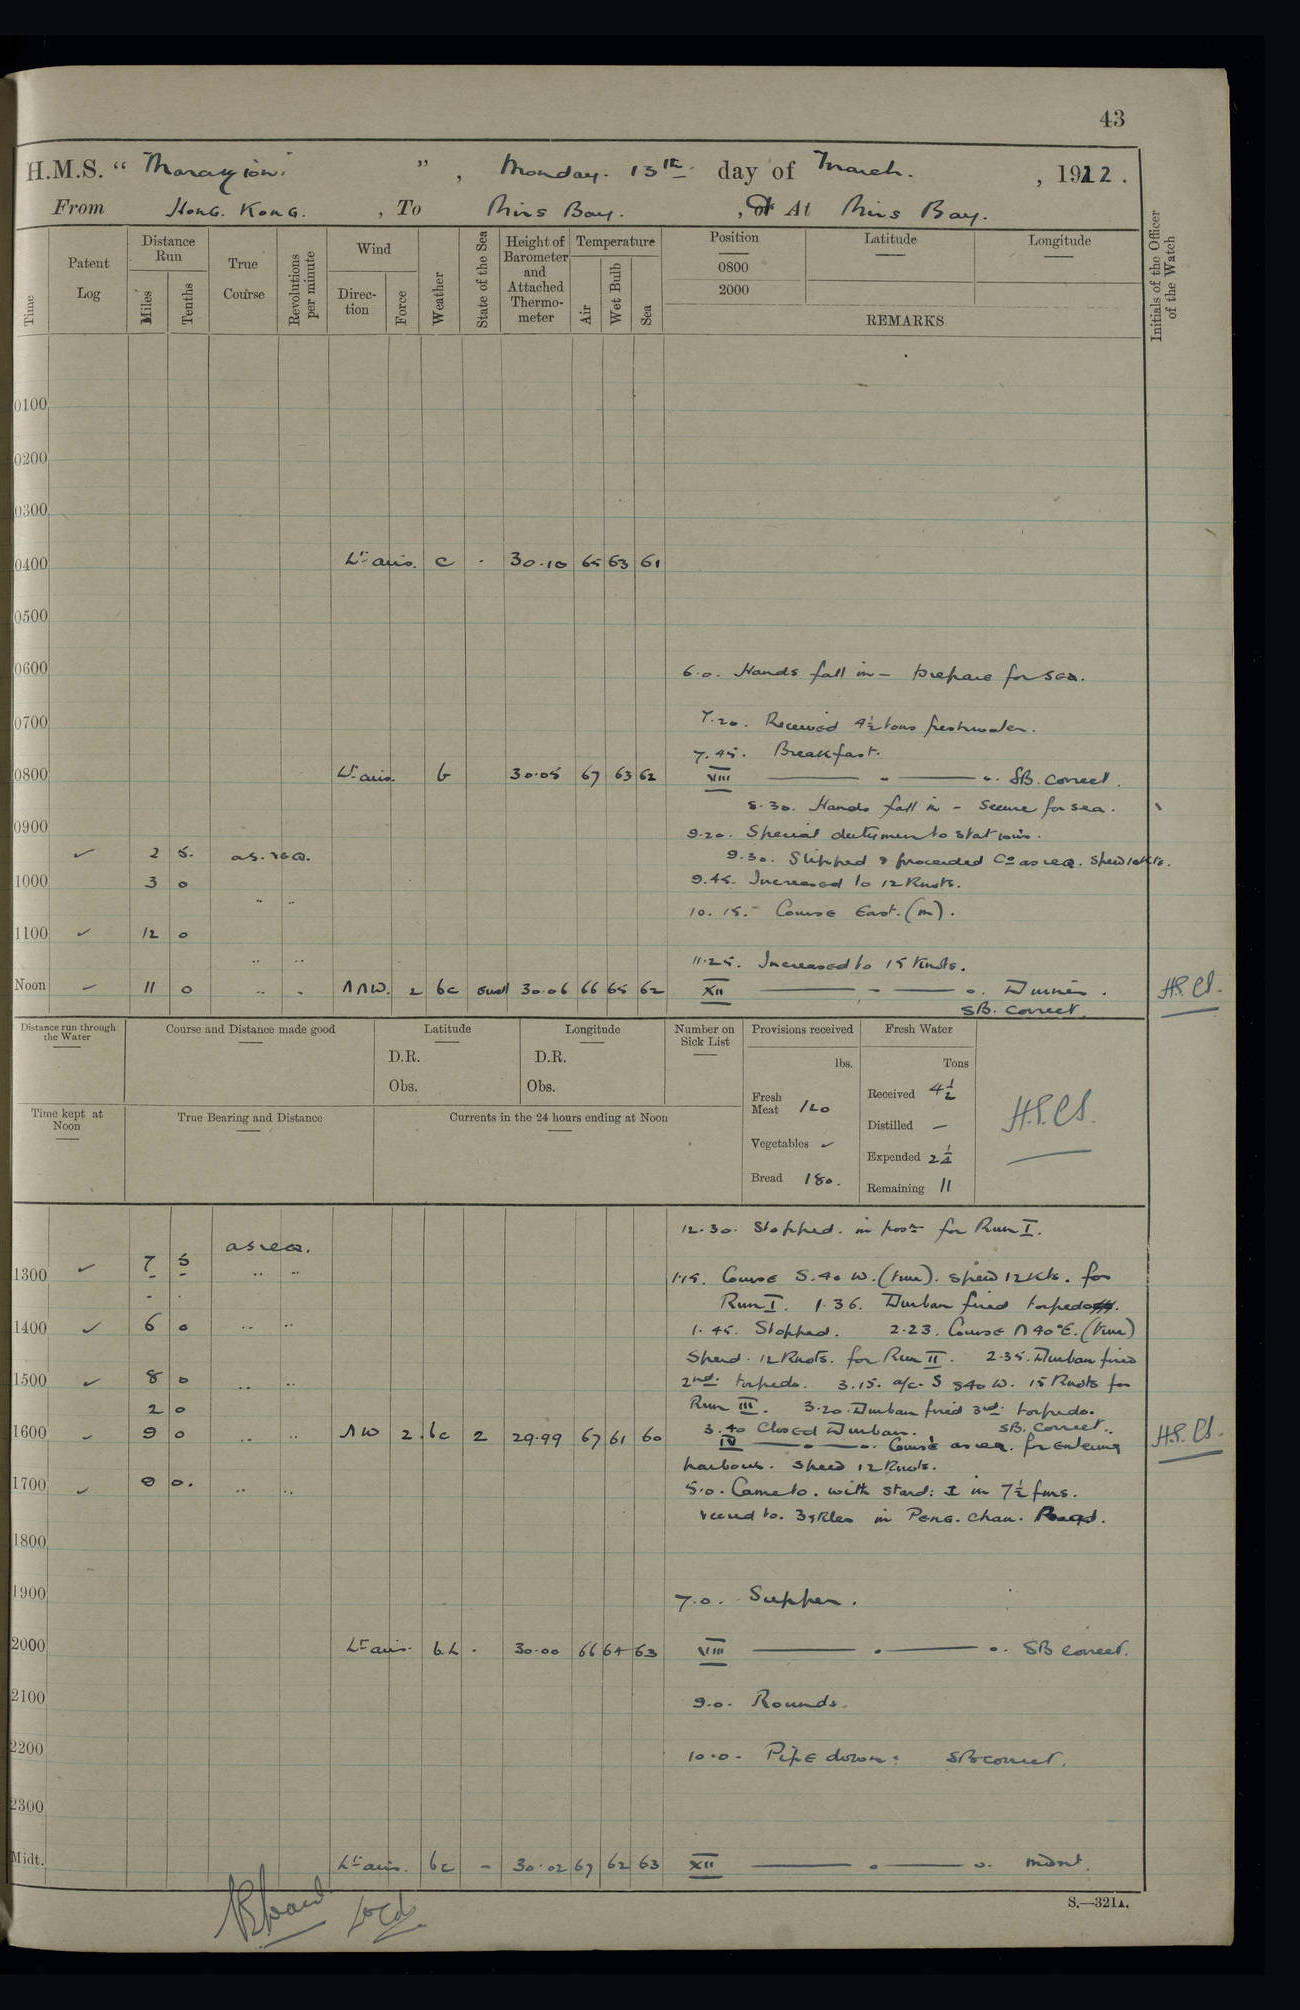 43
H.M.S. “ Marazion ” , Monday. 13th day of March. , 1922.
From Hong. Kong. , To Mirs Bay. , or At Mirs Bay.
Time
Patent Log
Distance Run
Miles
Tenths
True Course
Revolutions per minute
Wind
Direction
Force
Weather
State of the Sea
Height of Barometer and Attached Thermometer
Temperature
Air
Wet Bulb
Sea
Position
0800
2000
Latitude
Longitude
REMARKS
Initials of the Officer of the Watch
0100
0200
0300
0400 Lt airs. c - 30.10 65 63 61
0500
0600 6.0. Hands fall in – prepare for sea.
0700 7.20. Received 4½ tons freshwater.
7.45. Breakfast.
0800 Lt airs. b 30.05 67 63 62 VIII SB. correct.
8.30. Hands fall in – secure for sea.
0900 9.20. Special dutymen to stations.
✓ 2 5. as. req. 9.30. Slipped & proceeded Co as req. speed 10 Kts.
1000 3 0 9.45. Increased to 12 Knots.
10.15. Course East. (m).
1100 ✓ 12 0
11.25. Increased to 15 Knots.
Noon ✓ 11 0 NNW. 2 bc 30.06 66 65 62 XII
SB. correct. H.P.
Distance run through the Water
Course and Distance made good
Latitude
D.R.
Obs.
Longitude
D.R.
Obs.
Number on Sick List
Provisions received
lbs.
Fresh Meat 120
Vegetables ✓
Bread 180.
Fresh Water
Tons
Received 4½
Distilled —
Expended 2½
Remaining 11
Time kept at Noon
True Bearing and Distance
Currents in the 24 hours ending at Noon
12.30. Stopped. in posn for Run I.
1300 ✓ 7 5 as req. 1.15. Course S.40 W. (true). speed 12 Kts. for
Run I. 1.36. Durban fired torpedo.
1400 ✓ 6 0 1.45. Stopped. 2.23. Course N 40°E. (true)
Speed. 12 Knots. for Run II. 2.35. Durban fired
1500 ✓ 8 0 2nd torpedo. 3.15. a/c. S 40 W. 15 Knots for
2 0 Run III. 3.20. Durban fired 3rd torpedo.
1600 ✓ 9 0 NW 2. bc 2 29.99 67 61 60 3.40 Closed Durban. SB. correct.
IV Course as req. for entering
harbour. speed 12 Knots.
1700 ✓ 9 0. 5.0. Came to. with Starbd: in 7½ fms.
veerd to. 3 skles in Peng. Chau. Road.
1800
1900 7.0. Supper.
2000 Lt airs. - 30.00 66 64 63 VIII SB correct.
2100 9.0. Rounds.
2200 10.0. Pipe down. SB correct.
2300
Midt. Lt airs. bc - 30.02 67 62 63 XII midnt.
S.—321A.